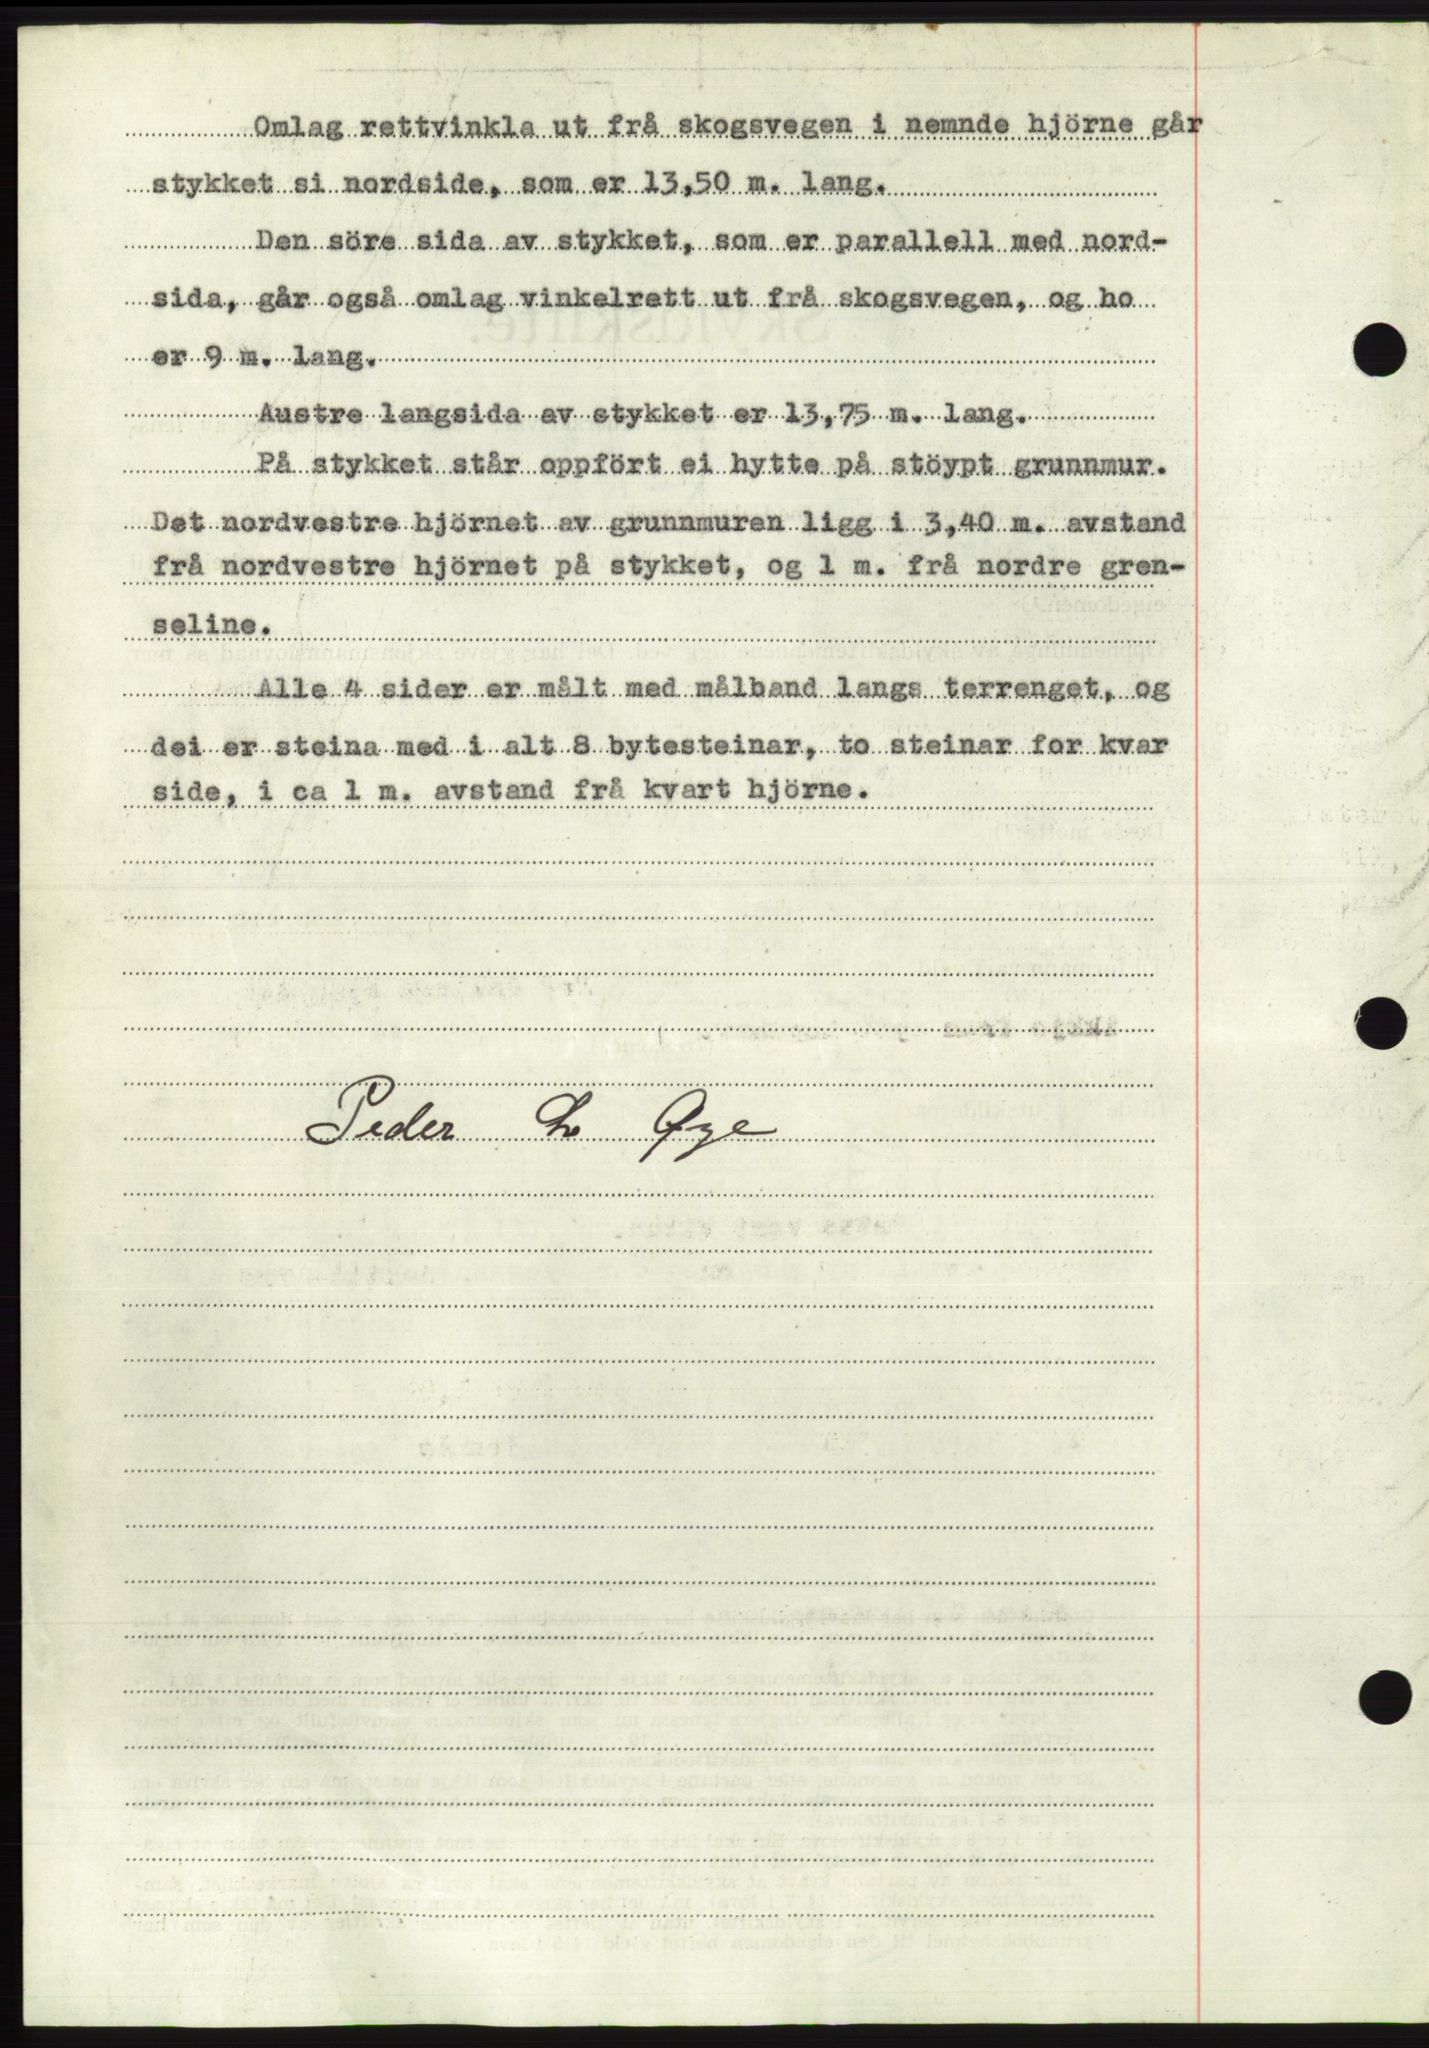 Omlag rettvinkla ut frå skogsvegen i nemnde hjörne går
stykket si nordside, som er 13,50 m. lang.
Den söre sida av stykket, som er parallell med nord-
sida, går også omlag vinkelrett ut frå skogsvegen, og ho
er 9 m. lang.
Austre langsida av stykket er 13,75 m. lang.
På stykket står oppfört ei hytte på stöypt grunnmur.
Det nordvestre hjörnet av grunnmuren ligg i 3,40 m. avstand
frå nordvestre hjörnet på stykket, og 1 m. frå nordre gren-
seline.
Alle 4 sider er målt med målband langs terrenget, og
dei er steina med i alt 8 bytesteinar, to steinar for kvar
side, i ca 1 m. avstand frå kvart hjörne.
Peder L Øye